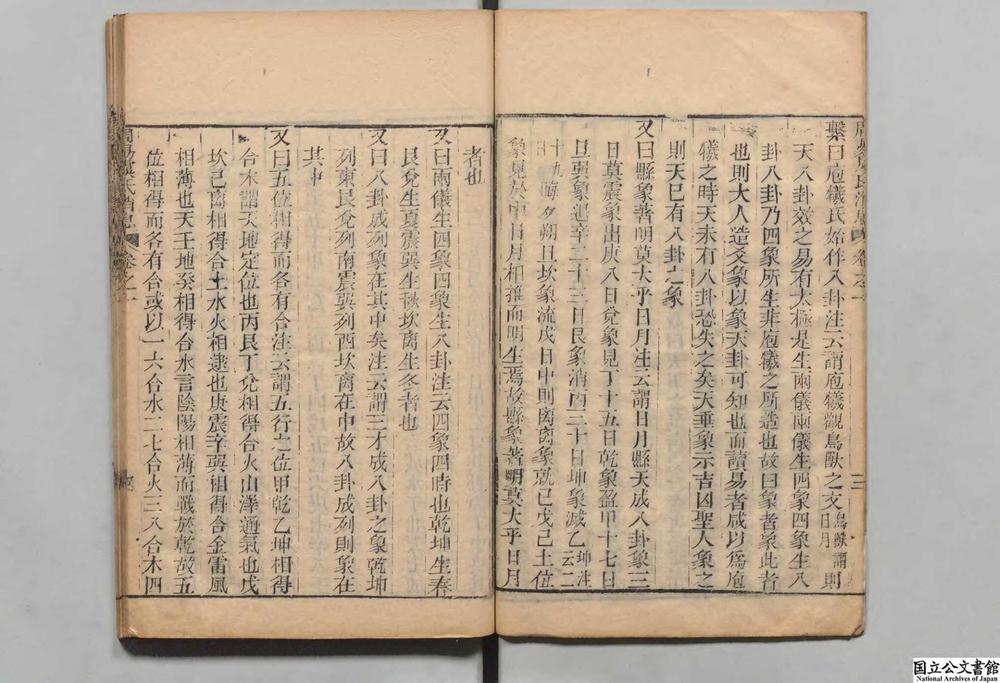 周易虞氏消息 卷之一 三
繫曰庖犧氏始作八卦注云謂庖犧觀鳥獸之文鳥獸謂日月則
天八卦效之易有太極是生兩儀兩儀生四象四象生八
卦八卦乃四象所生非庖犧之所造也故曰象者象此者
也則大人造爻象以象天卦可知也而讀易者咸以爲庖
犧之時天未有八卦恐失之矣天垂象示吉凶聖人象之
則天已有八卦之象
又曰縣象著明莫大乎日月注云謂日月縣天成八卦象三
日莫震象出庚八日兌象見丁十五日乾象盈甲十七日
旦巽象退辛二十三日艮象消丙三十日坤象滅乙坤注云二
十九日晦夕朔旦坎象流戊日中則离离象就己戊己土位
象見於中日月相推而明生焉故縣象著明莫大乎日月
者也
又曰兩儀生四象四象生八卦注云四象四時也乾坤生春
艮兌生夏震巽生秋坎离生冬者也
又曰八卦成列象在其中矣注云謂三才成八卦之象乾坤
列東艮兌列南震巽列西坎离在中故八卦成列則象在
其中
又曰五位相得而各有合注云謂五行之位甲乾乙坤相得
合木謂天地定位也丙艮丁兌相得合火山澤通氣也戊
坎己离相得合土水火相逮也庚震辛巽相得合金雷風
相薄也天壬地癸相得合水言陰陽相薄而戰於乾故五
位相得而各有合或以一六合水二七合火三八合木四
周易虞氏消息 卷之一
国立公文書館
National Archives of Japan